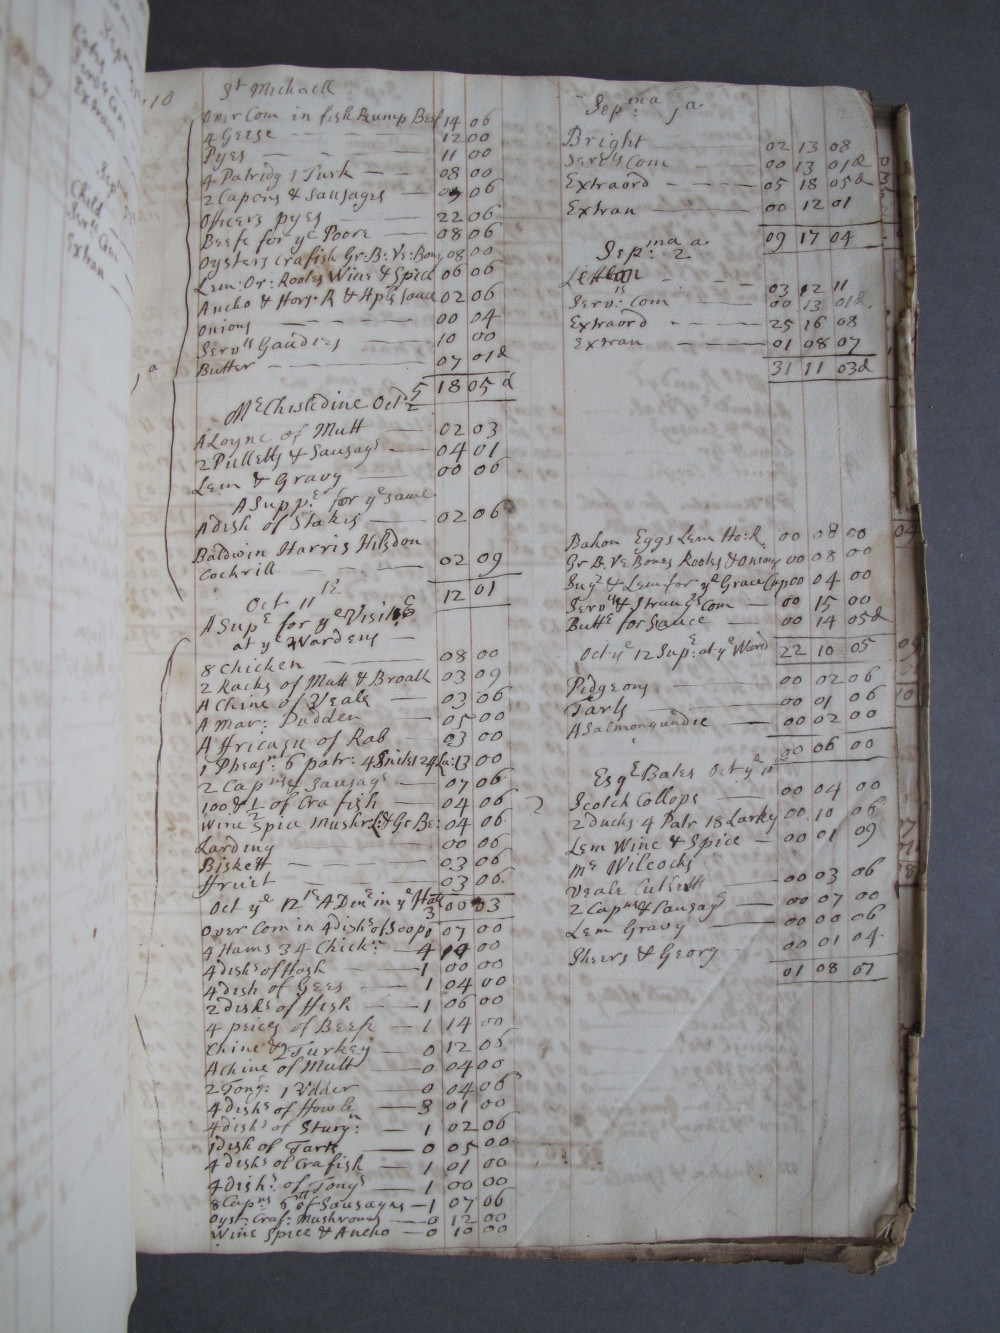 10
St Michaell
Over Com in fish Rump Beef 14 06
4 Geese 12 00
Pyes 11 00
4 Patridg 1 Turk 08 00
2 Capons & Sausages 09 06
Officers pyes 22 06
Beefe for ye Poore 08 06
Oysters Crafish Gr: B: Ve: Bons 08 00
Lem: Or: Rootes Wine & Spice 06 06
Ancho & Hors: R & Aple sauce 02 06
Onions 00 04
Servts Gaudies 10 00
Butter 07 01
5 18 05
Mr Chisledine Oct: 2
A Loyne of Mutt 02 03
2 Pulletts & Sausags 04 01
Lem & Gravy 00 06
A Supper for ye same
A dish of Stakes 02 06
Baldwin Harris Hilsdon
Cockrill 02 09
12 01
Oct 11th
A Supr for ye Visitrs
at ye Wardens
8 Chicken 08 00
2 Racks of Mutt & Broath 03 09
A Chine of Veale 03 06
A Mar: Pudden 05 00
A ffricasy of Rab 03 00
1 Pheast 6 patr: 4 Snites 24 La: 13 00
2 Capns & Sausags 07 06
100 & ½ of Crafish 04 06
Wine Spice Mushr: & Gr Be: 04 06
Larding 00 06
Biskett 03 06
ffruit 03 06
3 00 03
Oct ye 12th A Dinr in ye Hall
Over Com in 4 dishs of Soop 0 07 00
4 Hams 34 Chickns 4 14 00
4 dishs of Hash 1 00 00
4 dish of Gees 1 04 00
2 dishs of Fish 1 06 00
4 peices of Beefe 1 14 00
Chine & 2 Turkey 0 12 06
A Chine of Mutt 0 04 00
2 Tongs: 1 Udder 0 04 06
4 dishs of Fowls 3 01 00
4 dishs of Sturgn: 1 02 06
1 dish of Tarts 0 05 00
4 dishs of Crafish 1 01 00
4 dishs: of Tongs 1 00 00
8 Capns 6 of Sausages 1 07 06
Oyst: Craf: Mushroons 0 12 00
Wine Spice & Ancho 0 10 00
Sepma 1a
Bright 02 13 08
Servts Com 00 13 01
Extraord 05 18 05
Extran 00 12 01
09 17 04
Sepma 2a
03 12 11
Servts Com 00 13 01
Extraord 25 16 08
Extran 01 08 07
31 11 03
Bakon Eggs Lem Ho: R 00 08 00
Gr B Ve Bones Rootes & Onions 00 08 00
Sugr & Lem for ye Grace Cup 00 04 00
Servts & Strangs Com 00 15 00
Buttr for Sauce 00 14 05
22 10 05
Oct ye 12 Supr: at ye Ward
Pidgeons 00 02 06
Tarts 00 01 06
A Salmongundie 00 02 00
00 06 00
Esqr Bates Oct ye 10th
Scotch Collops 00 04 00
2 ducks 4 Patr 18 Larks 00 10 06
Lem Wine & Spice 00 01 09
Mr Wilcocks
Veale Cutletts 00 03 06
2 Capns & Sausags 00 07 00
Lem Gravy 00 00 06
Sheers & Georg 00 01 04
01 08 07